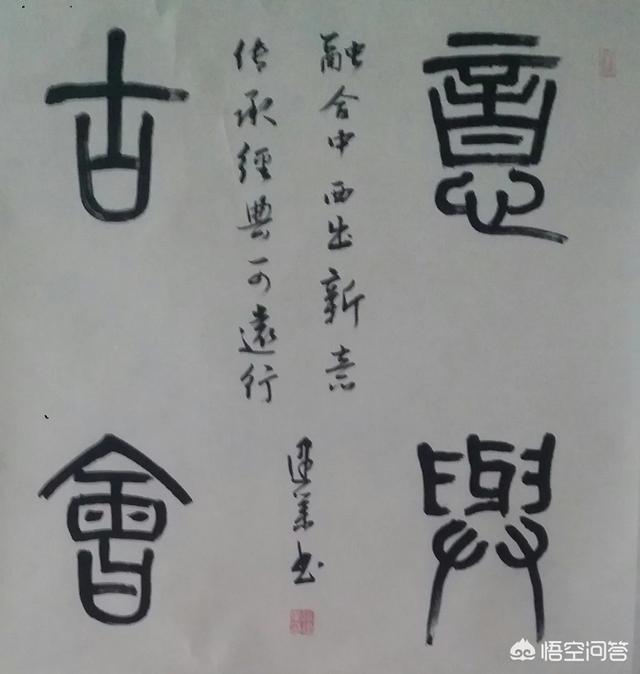 意與
融合中西出新意
传承經典可遠行
书
古會
悟空问答